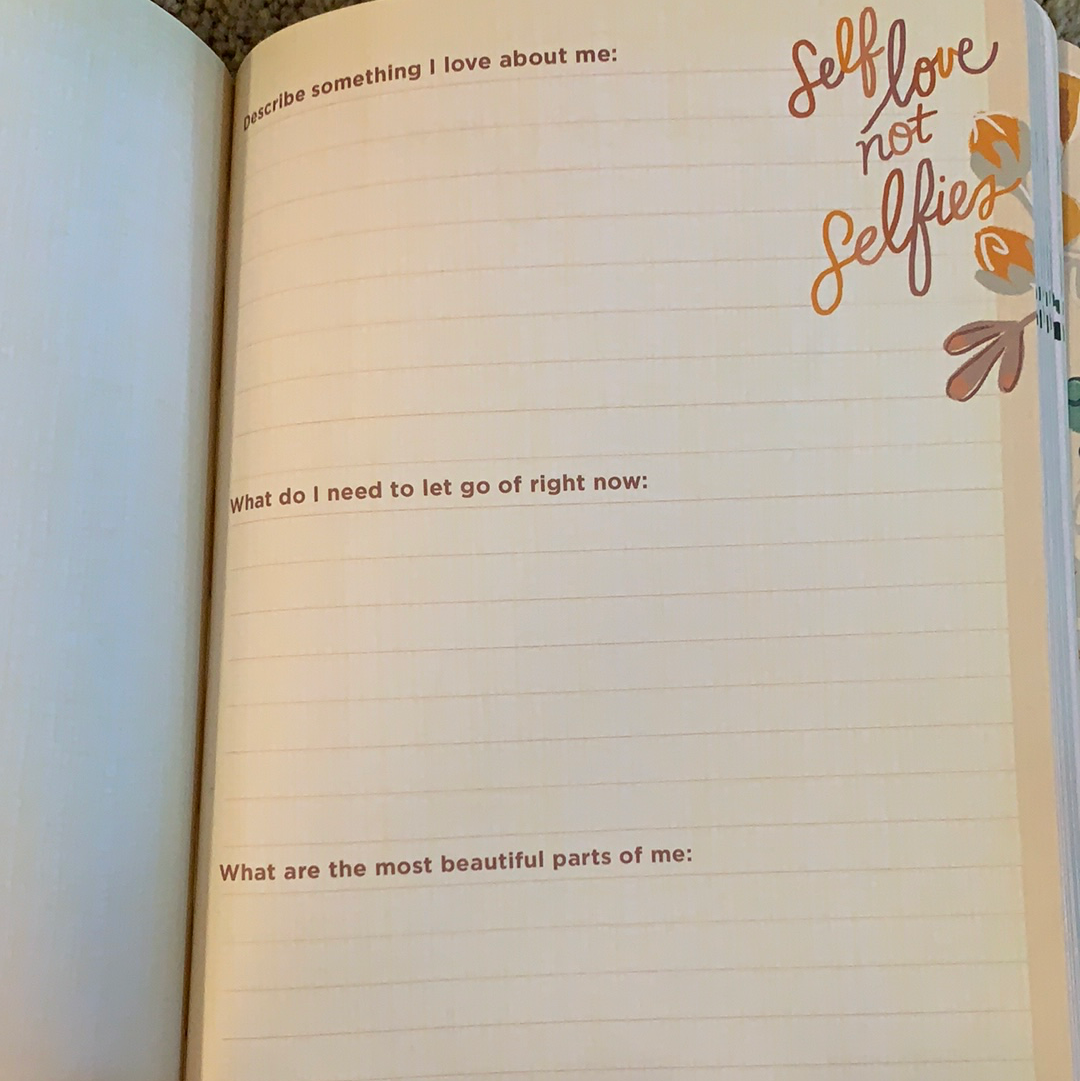 Self love
not
Selfies
Describe something I love about me:
What do I need to let go of right now:
What are the most beautiful parts of me: